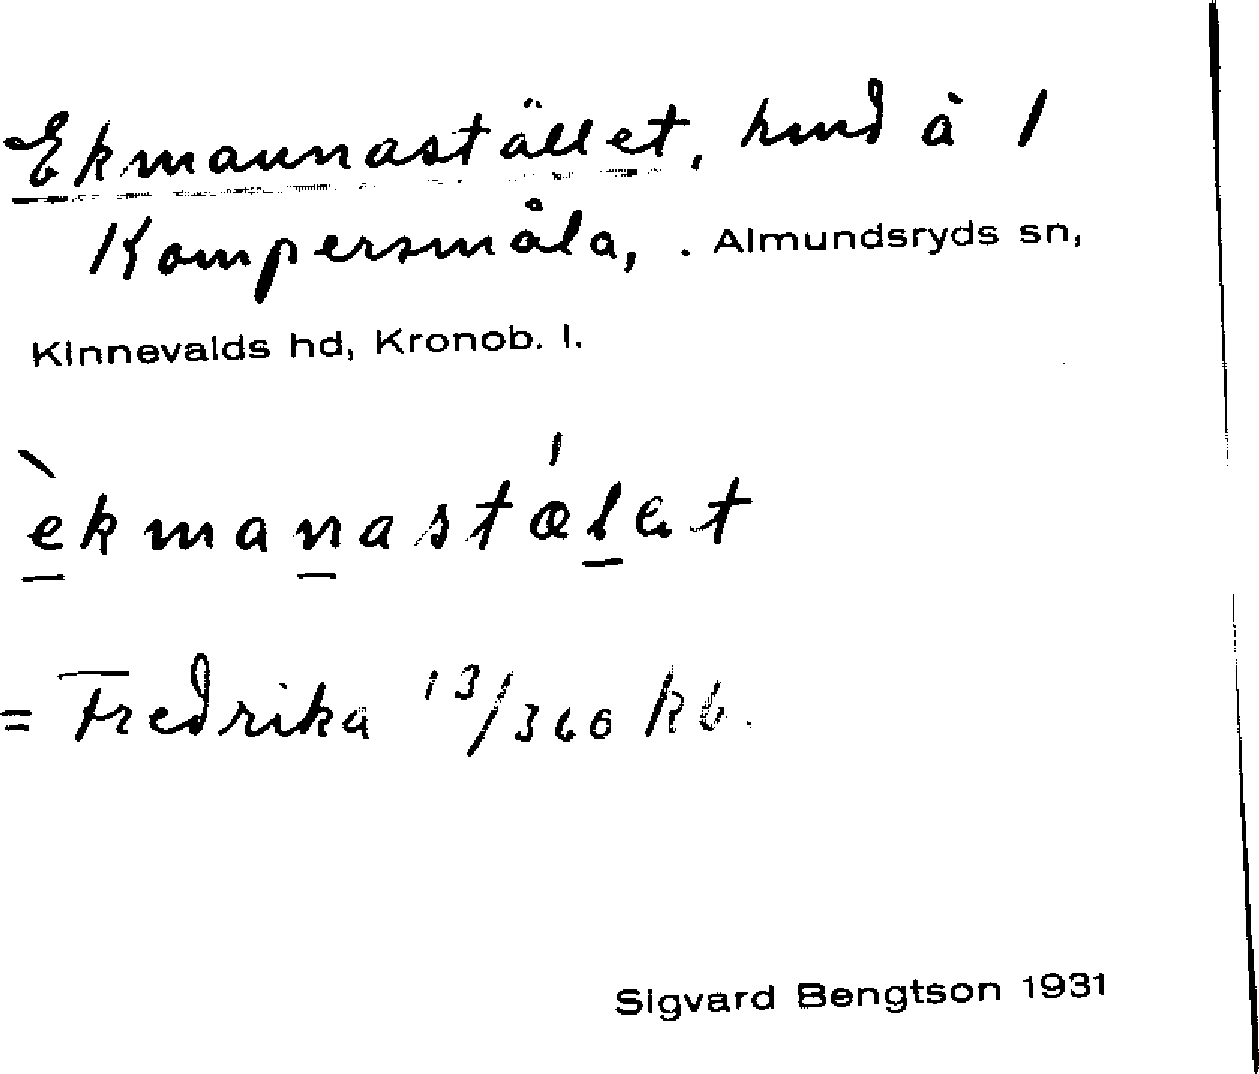 Ekmannastället, hmd å 1
Kampersmåla, . Almundsryds sn,
Kinnevalds hd, Kronob. l.
èkmanastǽlet
= Fredrika 13/366 kb.
Sigvard Bengtson 1931